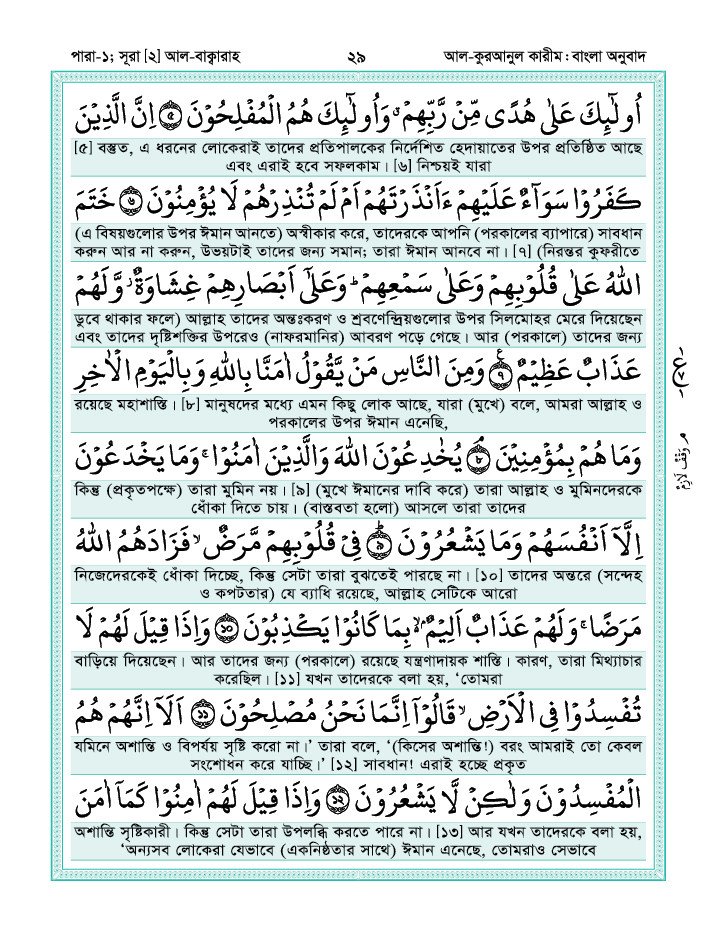 পারা-১; সূরা [২] আল-বাক্বারাহ
২৯
আল-কুরআনুল কারীম : বাংলা অনুবাদ
اُولٰٓئِكَ عَلٰى هُدًى مِّنْ رَّبِّهِمْ ۙ وَاُولٰٓئِكَ هُمُ الْمُفْلِحُوْنَ ۝٥ اِنَّ الَّذِيْنَ
[৫] বস্তুত, এ ধরনের লোকেরাই তাদের প্রতিপালকের নির্দেশিত হেদায়াতের উপর প্রতিষ্ঠিত আছে
এবং এরাই হবে সফলকাম। [৬] নিশ্চয়ই যারা
كَفَرُوْا سَوَآءٌ عَلَيْهِمْ ءَاَنْذَرْتَهُمْ اَمْ لَمْ تُنْذِرْهُمْ لَا يُؤْمِنُوْنَ ۝٦ خَتَمَ
(এ বিষয়গুলোর উপর ঈমান আনতে) অস্বীকার করে, তাদেরকে আপনি (পরকালের ব্যাপারে) সাবধান
করুন আর না করুন, উভয়টাই তাদের জন্য সমান; তারা ঈমান আনবে না। [৭] (নিরন্তর কুফরীতে
اللهُ عَلٰى قُلُوْبِهِمْ وَعَلٰى سَمْعِهِمْ ؕ وَعَلٰٓى اَبْصَارِهِمْ غِشَاوَةٌ ۡ وَّلَهُمْ
ডুবে থাকার ফলে) আল্লাহ তাদের অন্তঃকরণ ও শ্রবণেন্দ্রিয়গুলোর উপর সিলমোহর মেরে দিয়েছেন
এবং তাদের দৃষ্টিশক্তির উপরেও (নাফরমানির) আবরণ পড়ে গেছে। আর (পরকালে) তাদের জন্য
عَذَابٌ عَظِيْمٌ ۝٧ وَمِنَ النَّاسِ مَنْ يَّقُوْلُ اٰمَنَّا بِاللهِ وَبِالْيَوْمِ الْاٰخِرِ
রয়েছে মহাশাস্তি। [৮] মানুষদের মধ্যে এমন কিছু লোক আছে, যারা (মুখে) বলে, আমরা আল্লাহ ও
পরকালের উপর ঈমান এনেছি,
وَمَا هُمْ بِمُؤْمِنِيْنَ ۝٨ يُخٰدِعُوْنَ اللهَ وَالَّذِيْنَ اٰمَنُوْا ۚ وَمَا يَخْدَعُوْنَ
কিন্তু (প্রকৃতপক্ষে) তারা মুমিন নয়। [৯] (মুখে ঈমানের দাবি করে) তারা আল্লাহ ও মুমিনদেরকে
ধোঁকা দিতে চায়। (বাস্তবতা হলো) আসলে তারা তাদের
م وَقْفْ لَازِمْ
اِلَّآ اَنْفُسَهُمْ وَمَا يَشْعُرُوْنَ ۝٩ فِيْ قُلُوْبِهِمْ مَّرَضٌ ۙ فَزَادَهُمُ اللهُ
নিজেদেরকেই ধোঁকা দিচ্ছে, কিন্তু সেটা তারা বুঝতেই পারছে না। [১০] তাদের অন্তরে (সন্দেহ
ও কপটতার) যে ব্যাধি রয়েছে, আল্লাহ সেটিকে আরো
مَرَضًا ۚ وَلَهُمْ عَذَابٌ اَلِيْمٌ ۙ۬ بِمَا كَانُوْا يَكْذِبُوْنَ ۝١٠ وَاِذَا قِيْلَ لَهُمْ لَا
বাড়িয়ে দিয়েছেন। আর তাদের জন্য (পরকালে) রয়েছে যন্ত্রণাদায়ক শাস্তি। কারণ, তারা মিথ্যাচার
করেছিল। [১১] যখন তাদেরকে বলা হয়, ‘তোমরা
تُفْسِدُوْا فِى الْاَرْضِ ۙ قَالُوْٓا اِنَّمَا نَحْنُ مُصْلِحُوْنَ ۝١١ اَلَآ اِنَّهُمْ هُمُ
যমিনে অশান্তি ও বিপর্যয় সৃষ্টি করো না।’ তারা বলে, ‘(কিসের অশান্তি!) বরং আমরাই তো কেবল
সংশোধন করে যাচ্ছি।’ [১২] সাবধান! এরাই হচ্ছে প্রকৃত
الْمُفْسِدُوْنَ وَلٰكِنْ لَّا يَشْعُرُوْنَ ۝١٢ وَاِذَا قِيْلَ لَهُمْ اٰمِنُوْا كَمَآ اٰمَنَ
অশান্তি সৃষ্টিকারী। কিন্তু সেটা তারা উপলব্ধি করতে পারে না। [১৩] আর যখন তাদেরকে বলা হয়,
‘অন্যসব লোকেরা যেভাবে (একনিষ্ঠতার সাথে) ঈমান এনেছে, তোমরাও সেভাবে